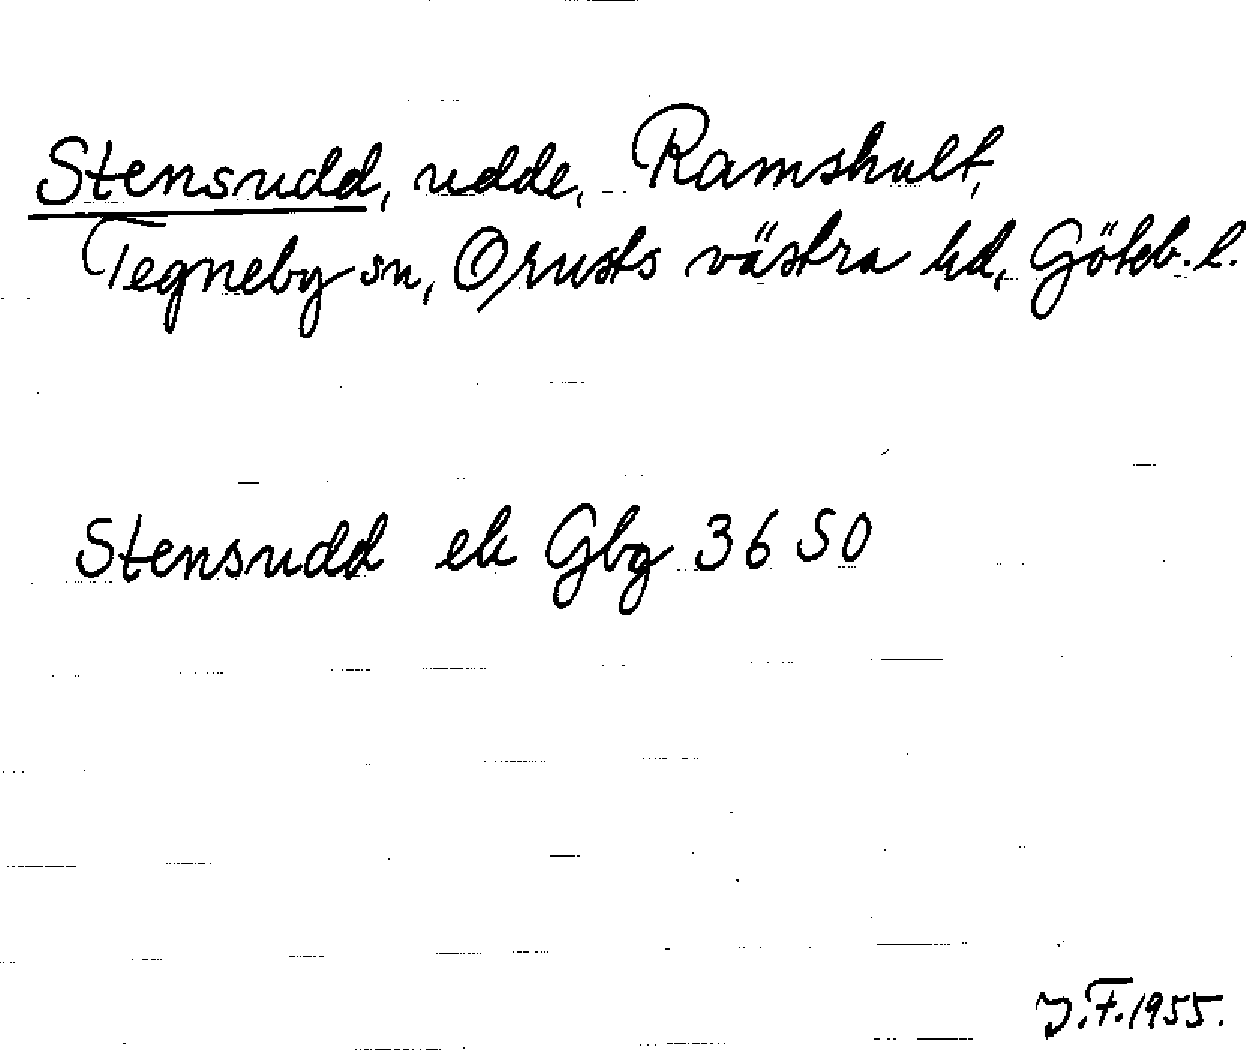 Stensudd, udde, Ramshult,
Tegneby sn, Orusts västra hd, Göteb. l.
Stensudd ek Gbg 3650
J.F. 1955.